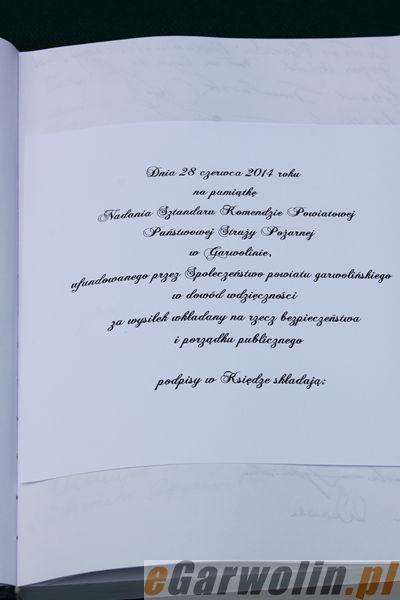 Dnia 28 czerwca 2014 roku
na pamiątkę
Nadania Sztandaru Komendzie Powiatowej
Państwowej Straży Pożarnej
w Garwolinie,
ufundowanego przez Społeczeństwo powiatu garwolińskiego
w dowód wdzięczności
za wysiłek wkładany na rzecz bezpieczeństwa
i porządku publicznego
podpisy w Księdze składają:
eGarwolin.pl